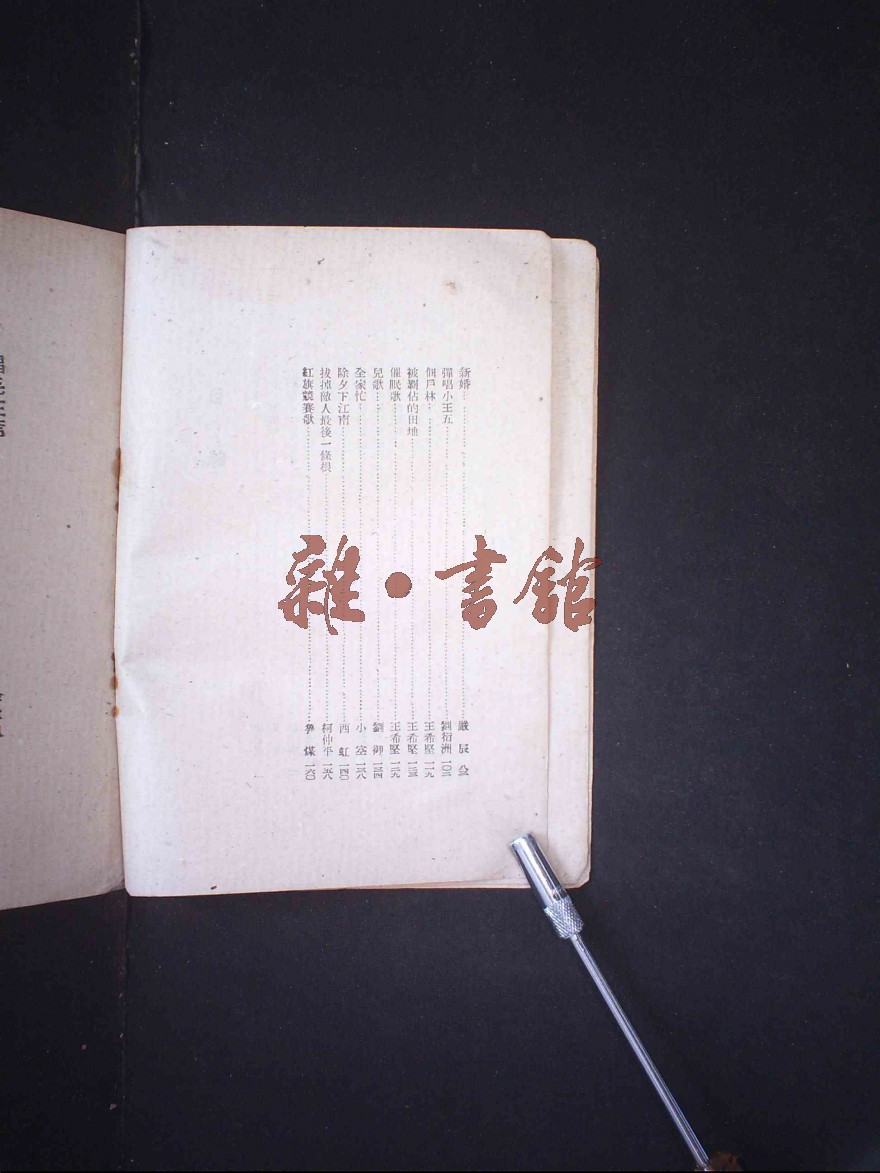 新婚……嚴辰 八三
彈唱小王五……劉衍洲 一〇三
佃戶林……王希堅 一一九
被霸佔的田地……王希堅 一二三
催眠歌……王希堅 一二九
兒歌……劉御 一三四
全家忙……小塞 一三八
除夕下江南……西虹 一四〇
拔掉敵人最後一條根……柯仲平 一五八
紅旗競賽歌……魯煤 一六〇
雜·書館